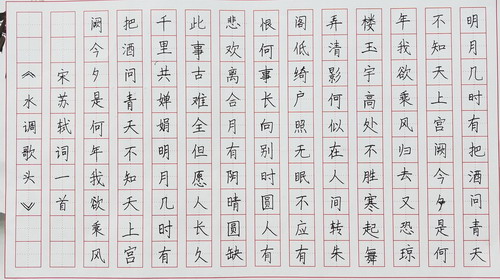 明月几时有把酒问青天
不知天上宫阙今夕是何
年我欲乘风归去又恐琼
楼玉宇高处不胜寒起舞
弄清影何似在人间转朱
阁低绮户照无眠不应有
恨何事长向别时圆人有
悲欢离合月有阴晴圆缺
此事古难全但愿人长久
千里共婵娟明月几时有
把酒问青天不知天上宫
阙今夕是何年我欲乘风
宋苏轼词一首
《水调歌头》